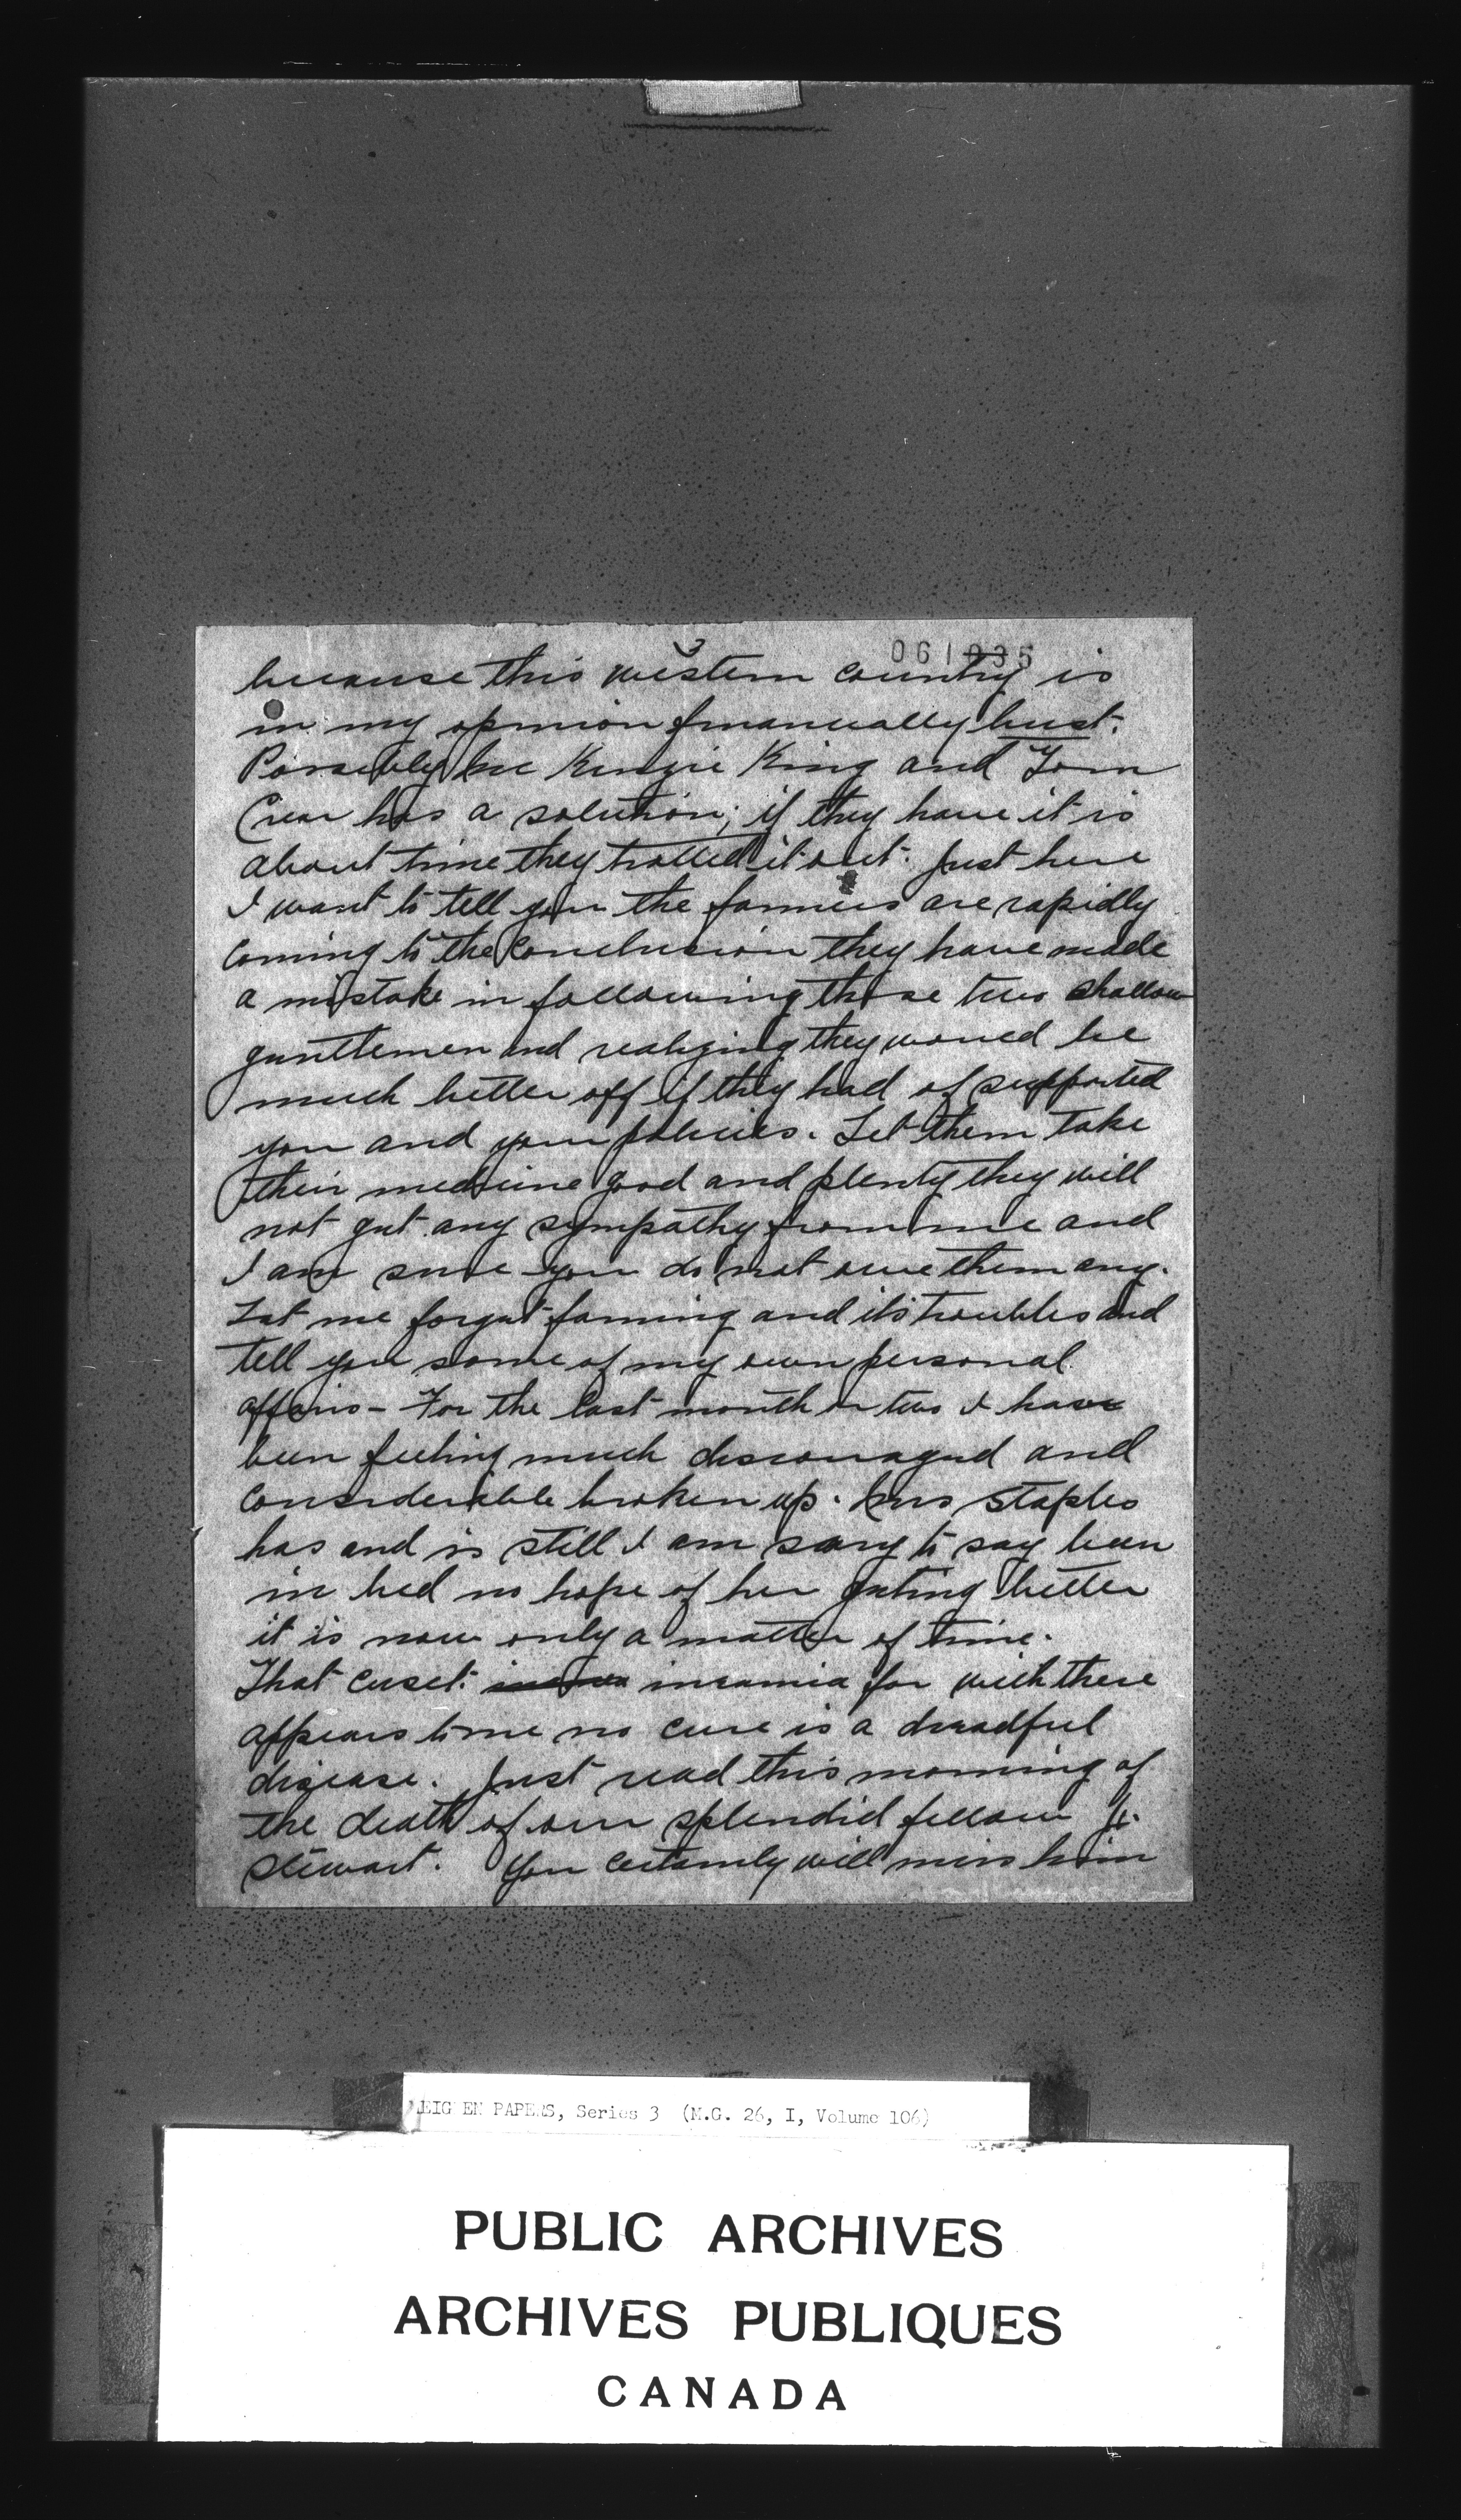 3
061035
because this western country is
in my opinion finanically bust.
Possibly Mc Kenzie King and Tom
Crear has a solution; if they have it is
about time they trotted it out. Just here
I want to tell you the farmers are rapidly
coming to the conclusion they have made
a mistake in following those two shallow
genttlemen and realizing they would be
much better off if they had of supported
you and your policies. Let them take
their medicine good and plenty they will
not get any sympathy from me and
I am sure you do not owe them any.
Let me forget farming and its troubles and
tell you some of my own personal
affairs - For the last month or two I have
been feeling much discouraged and
considerable broken up. Mrs Staples
has and is still I am sorry to say been
in bed no hope of her getting better
it is now only a matter of time.
That curset insamia for wich there
appears to me no cure is a dreadful
disease. Just read this morning of
the death of our splendid fellow Jr.
Stewart. You certainly will miss him
EIGHEN PAPERS, Series 3 (M.G. 26, I, Volume 106)
PUBLIC ARCHIVES
ARCHIVES PUBLIQUES
CANADA